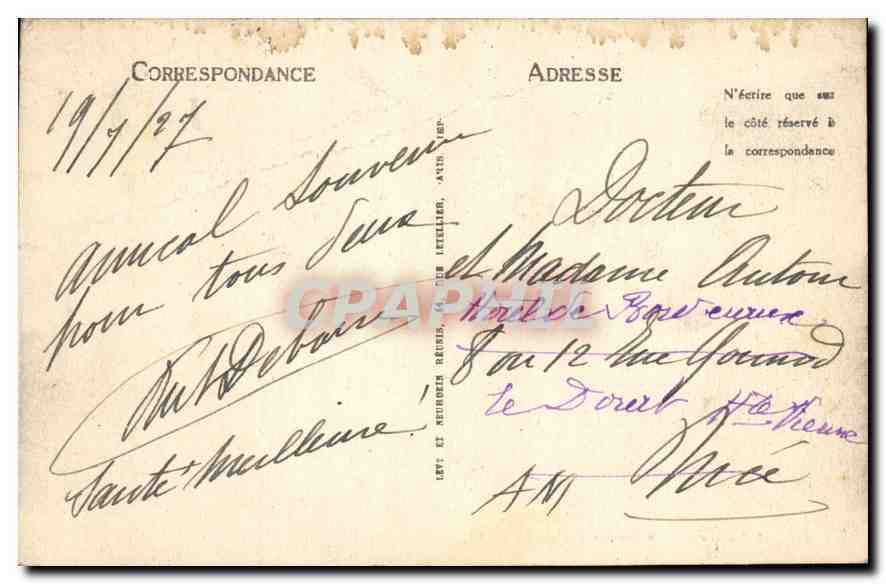 CORRESPONDANCE
19/7/27
Amical Souvenir
pour tous deux
Santé Meilleure!
LÉVY ET NEURDEIN RÉUNIS, 44 RUE LETELLIER, PARIS IMP.
ADRESSE
N'écrire que sur
le côté réservé à
la correspondance
Docteur
et Madame
Hotel de Bordeaux
8 ou 12 Rue Gounod
Le Dorat Hte Vienne
Nice
AM
CPAPHIL